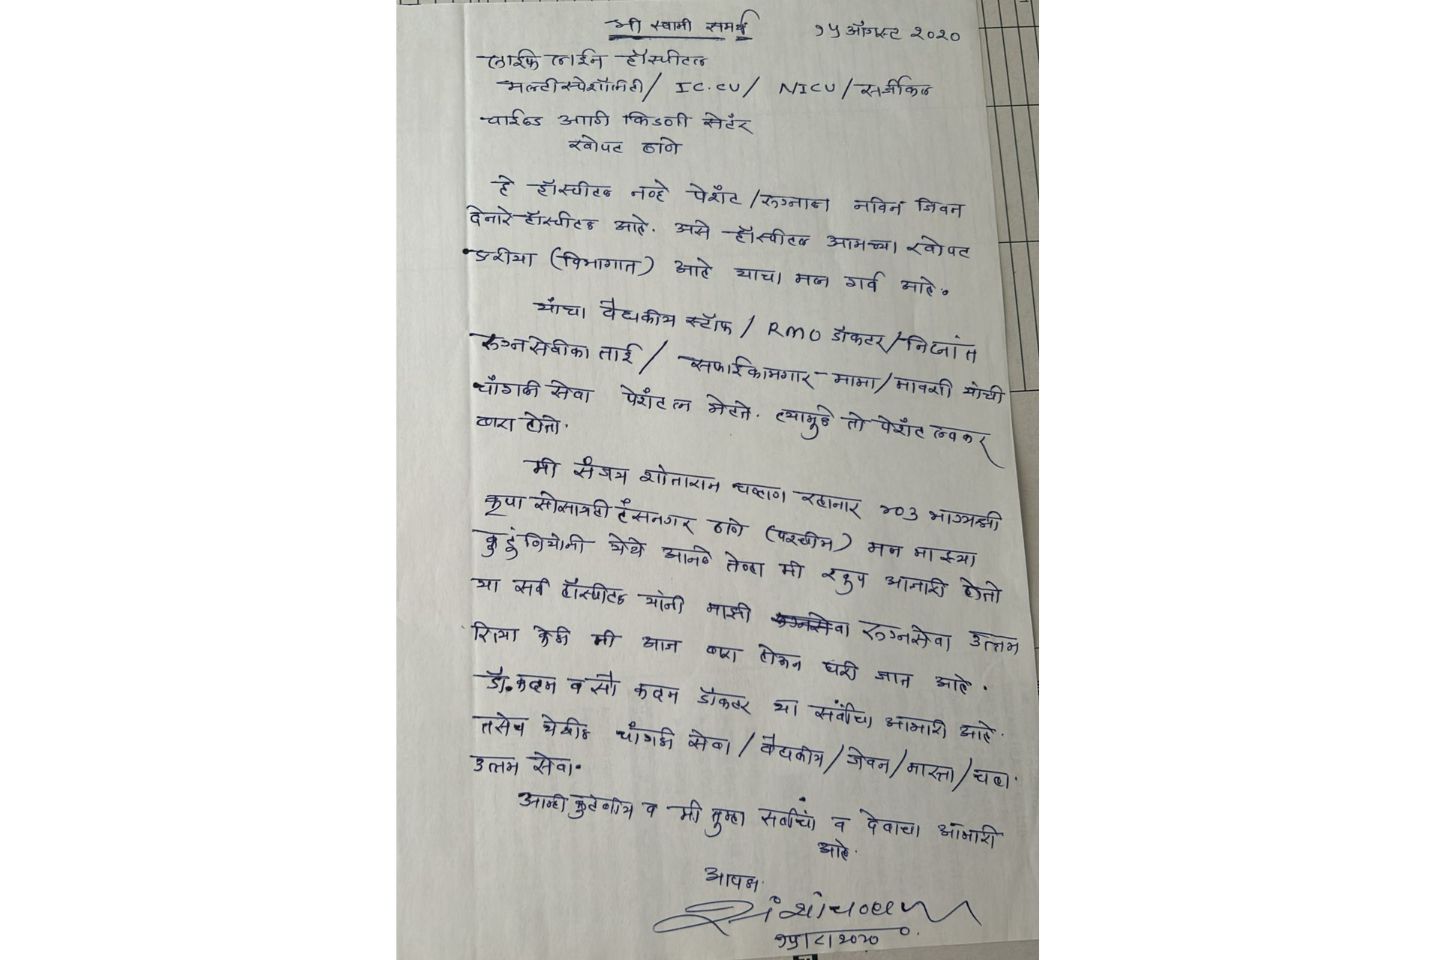 श्री स्वामी समर्थ
१५ ऑगस्ट २०२०
लाईफ लाईन हॉस्पीटल
मल्टीस्पेशॉलिटी/ IC.CU/ NICU/सर्जीकल
चाईल्ड आणि किडनी सेटंर
खोपट ठाणे
हे हॉस्पीटल नव्हे पेशंट/रुग्नाला नविन जिवन
देनारे हॉस्पीटल आहे. असे हॉस्पीटल आमच्या खोपट
ऐरीया (विभागात) आहे याचा मला गर्व आहे.
यांचा वैद्यकीय स्टॉफ/ RMO डॉक्टर/निष्नांत
रुग्नसेवीका ताई/ सफाईकामगार-मामा/मावशी यांची
चांगली सेवा पेशंटला भेटते. त्यामुळे तो पेशंट लवकर
बरा होतो.
मी संजय शांताराम चव्हाण रहानार ७०३ भाग्यश्री
कृपा सोसायटी हंसनगर ठाणे (पश्चीम) मला माझ्या
कुटुंबियांनी येथे आनले तेव्हा मी खुप आजारी होतो
या सर्व हॉस्पीटल यांनी माझी रुग्नसेवा रुग्नसेवा उत्तम
रित्या केली मी आज बरा होऊन घरी जात आहे.
डॉ.कदम व सौ कदम डॉक्टर या सर्वांचा आभारी आहे.
तसेच येथील चांगली सेवा/वैद्यकीय/जेवन/नास्ता/चहा.
उत्तम सेवा.
आम्ही कुटंबीय व मी तुम्हा सर्वांचा व देवाचा आभारी
आहे.
आपला.
सं शां चव्हाण
१५/८/२०२०